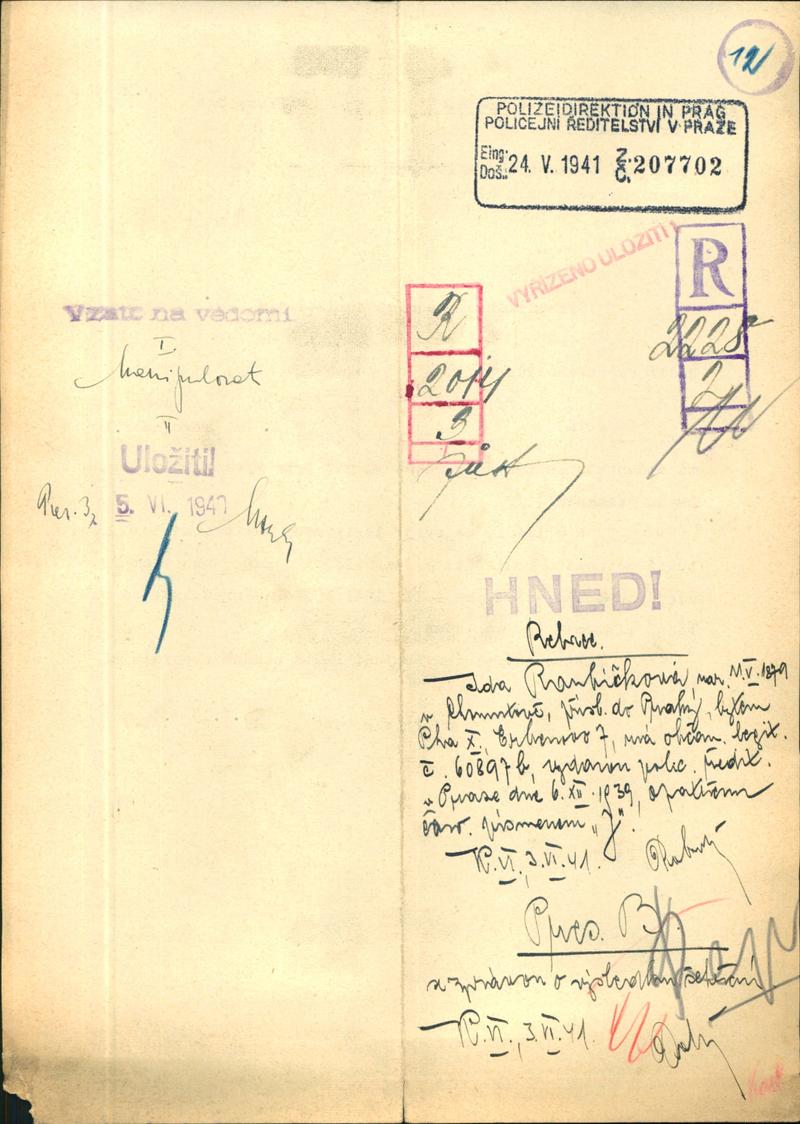 12
POLIZEIDIREKTION IN PRAG
POLICEJNÍ ŘEDITELSTVÍ V PRAZE
Eing.:
Doš.: 24. V. 1941 Z. Č. 207702
VYŘÍZENO ULOŽITI!
R
2228
2
R
2014
3
Vzato na vědomí
I.
Manipulovat
II
Uložiti!
5. VI. 1941
HNED!
Ida Roubíčková, nar. 11.V.1879
v, přísl. do Prahy, bytem
Pha X., Erbenova 7, má občan. legit.
č. 60897 b, vydanou polic. ředit.
v Praze dne 6.XII.1939, opatřenou
červ. písmenem „J".
K.VI., 3.VI.41.
Pres. B.
se zprávou o výsledku šetření
K.VI., 3.VI.41.